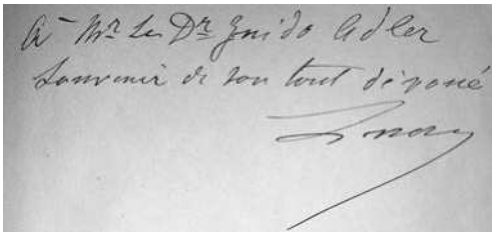 à Mr le Dr Guido Adler
Souvenir de son tout dévoué